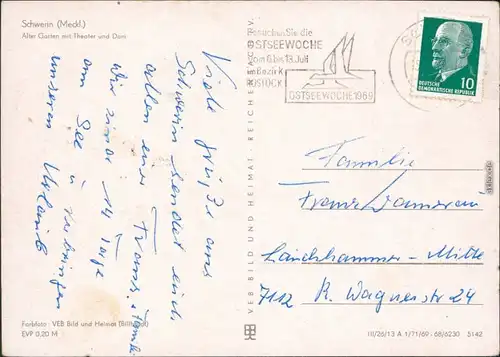 Schwerin (Meckl.)
Alter Garten mit Theater und Dom
Viele Grüße aus
Schwerin sendet euch
allen eure Franz. u. Familie
Wir sind 14 Tage
am See u. verbringen
unseren Urlaub
Farbfoto: VEB Bild und Heimat
EVP 0,20 M
VEB BILD UND HEIMAT REICHENBACH I. V.
Besuchen Sie die
OSTSEEWOCHE
vom 6. bis 13. Juli
im Bezirk
ROSTOCK
OSTSEEWOCHE 1969
10
DEUTSCHE
DEMOKRATISCHE REPUBLIK
Familie
Franz
Lauchhammer - Mitte
7112 R. Wagnerstr 24
III/26/13 A 1/71/69 - 68/6230 5142